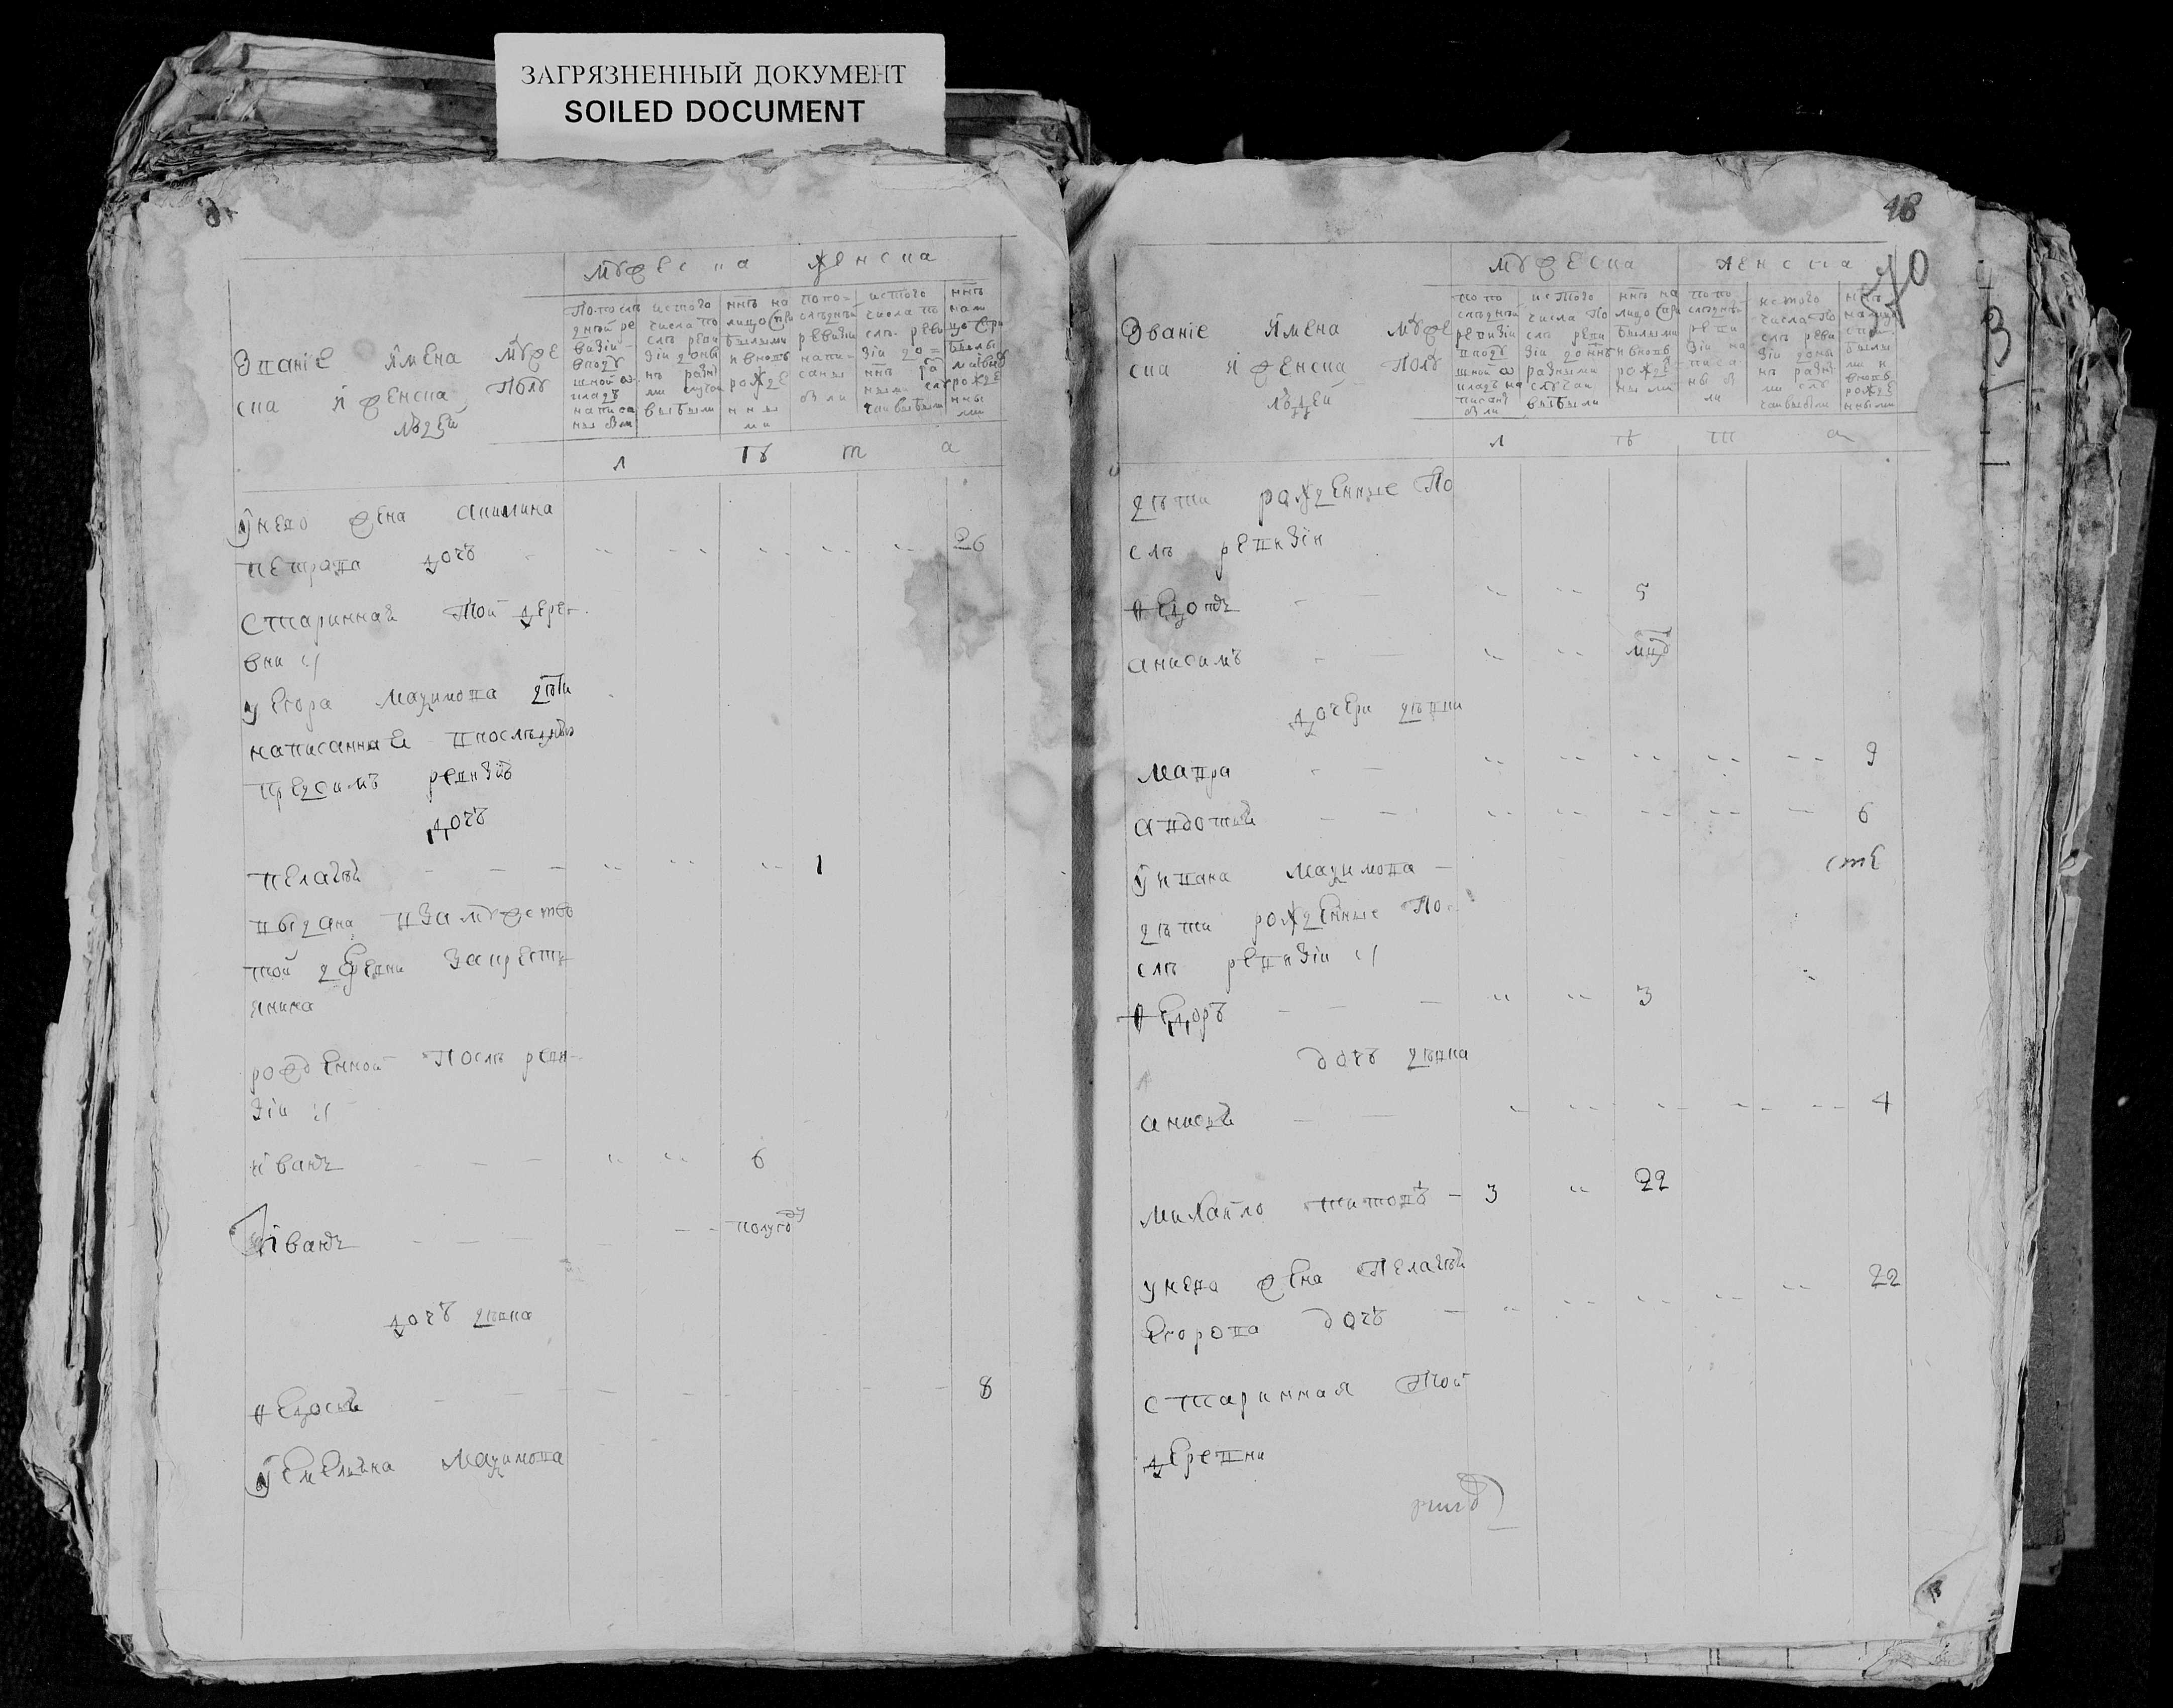 ЗАГРЯЗНЕННЫЙ ДОКУМЕНТ
SOILED DOCUMENT
мужеска женска
Званіе имена мужеска и женска полу людей
По последней ревизии в подушной оклад написаны были
ис того числа после ревизии до ныне разными случаи выбыли
ныне на лицо с прибылыми и вновь рожденными
по последней ревизии написаны были
ис того числа после ревизии до ныне разными случаи выбыли
ныне на лицо с прибылыми и вновь рожденными
л ѣ т а
у него жена акилина
петрова дочь 26
старинная той дерев
вни
у егора ма𝑖имова дети
написанная в последнею
пред сим ревизию
дочь
пелагея 1
выдана в замужество
той деревни за крестья
янина
рожденной после реви
зіи
иванъ 6
иванъ полугоду
дочь девка
федосья 8
у емельяна маѯимова
18
70
мужеска женска
Званіе имена мужеска и женска полу людей
по последней ревизии в подушной оклад написаны были
ис того числа после ревизии до ныне разными случаи выбыли
ныне на лицо с прибылыми и вновь рожденными
по последней ревизии написаны были
ис того числа после ревизии до ныне разными случаи выбыли
ныне на лицо с прибылыми и вновь рожденными
л ѣ т а
дѣти рожденные по
слѣ ревизіи
федотъ 5
анисимъ
дочери дѣвки
мавра 9
авдотья 6
у ивана маѯимова
дѣти рожденные по
слѣ ревизіи
федоръ 3
дочь дѣвка
анисья 4
михайло титовъ 3 22
у него жена пелагея
егорова дочь 22
старинная той
деревни